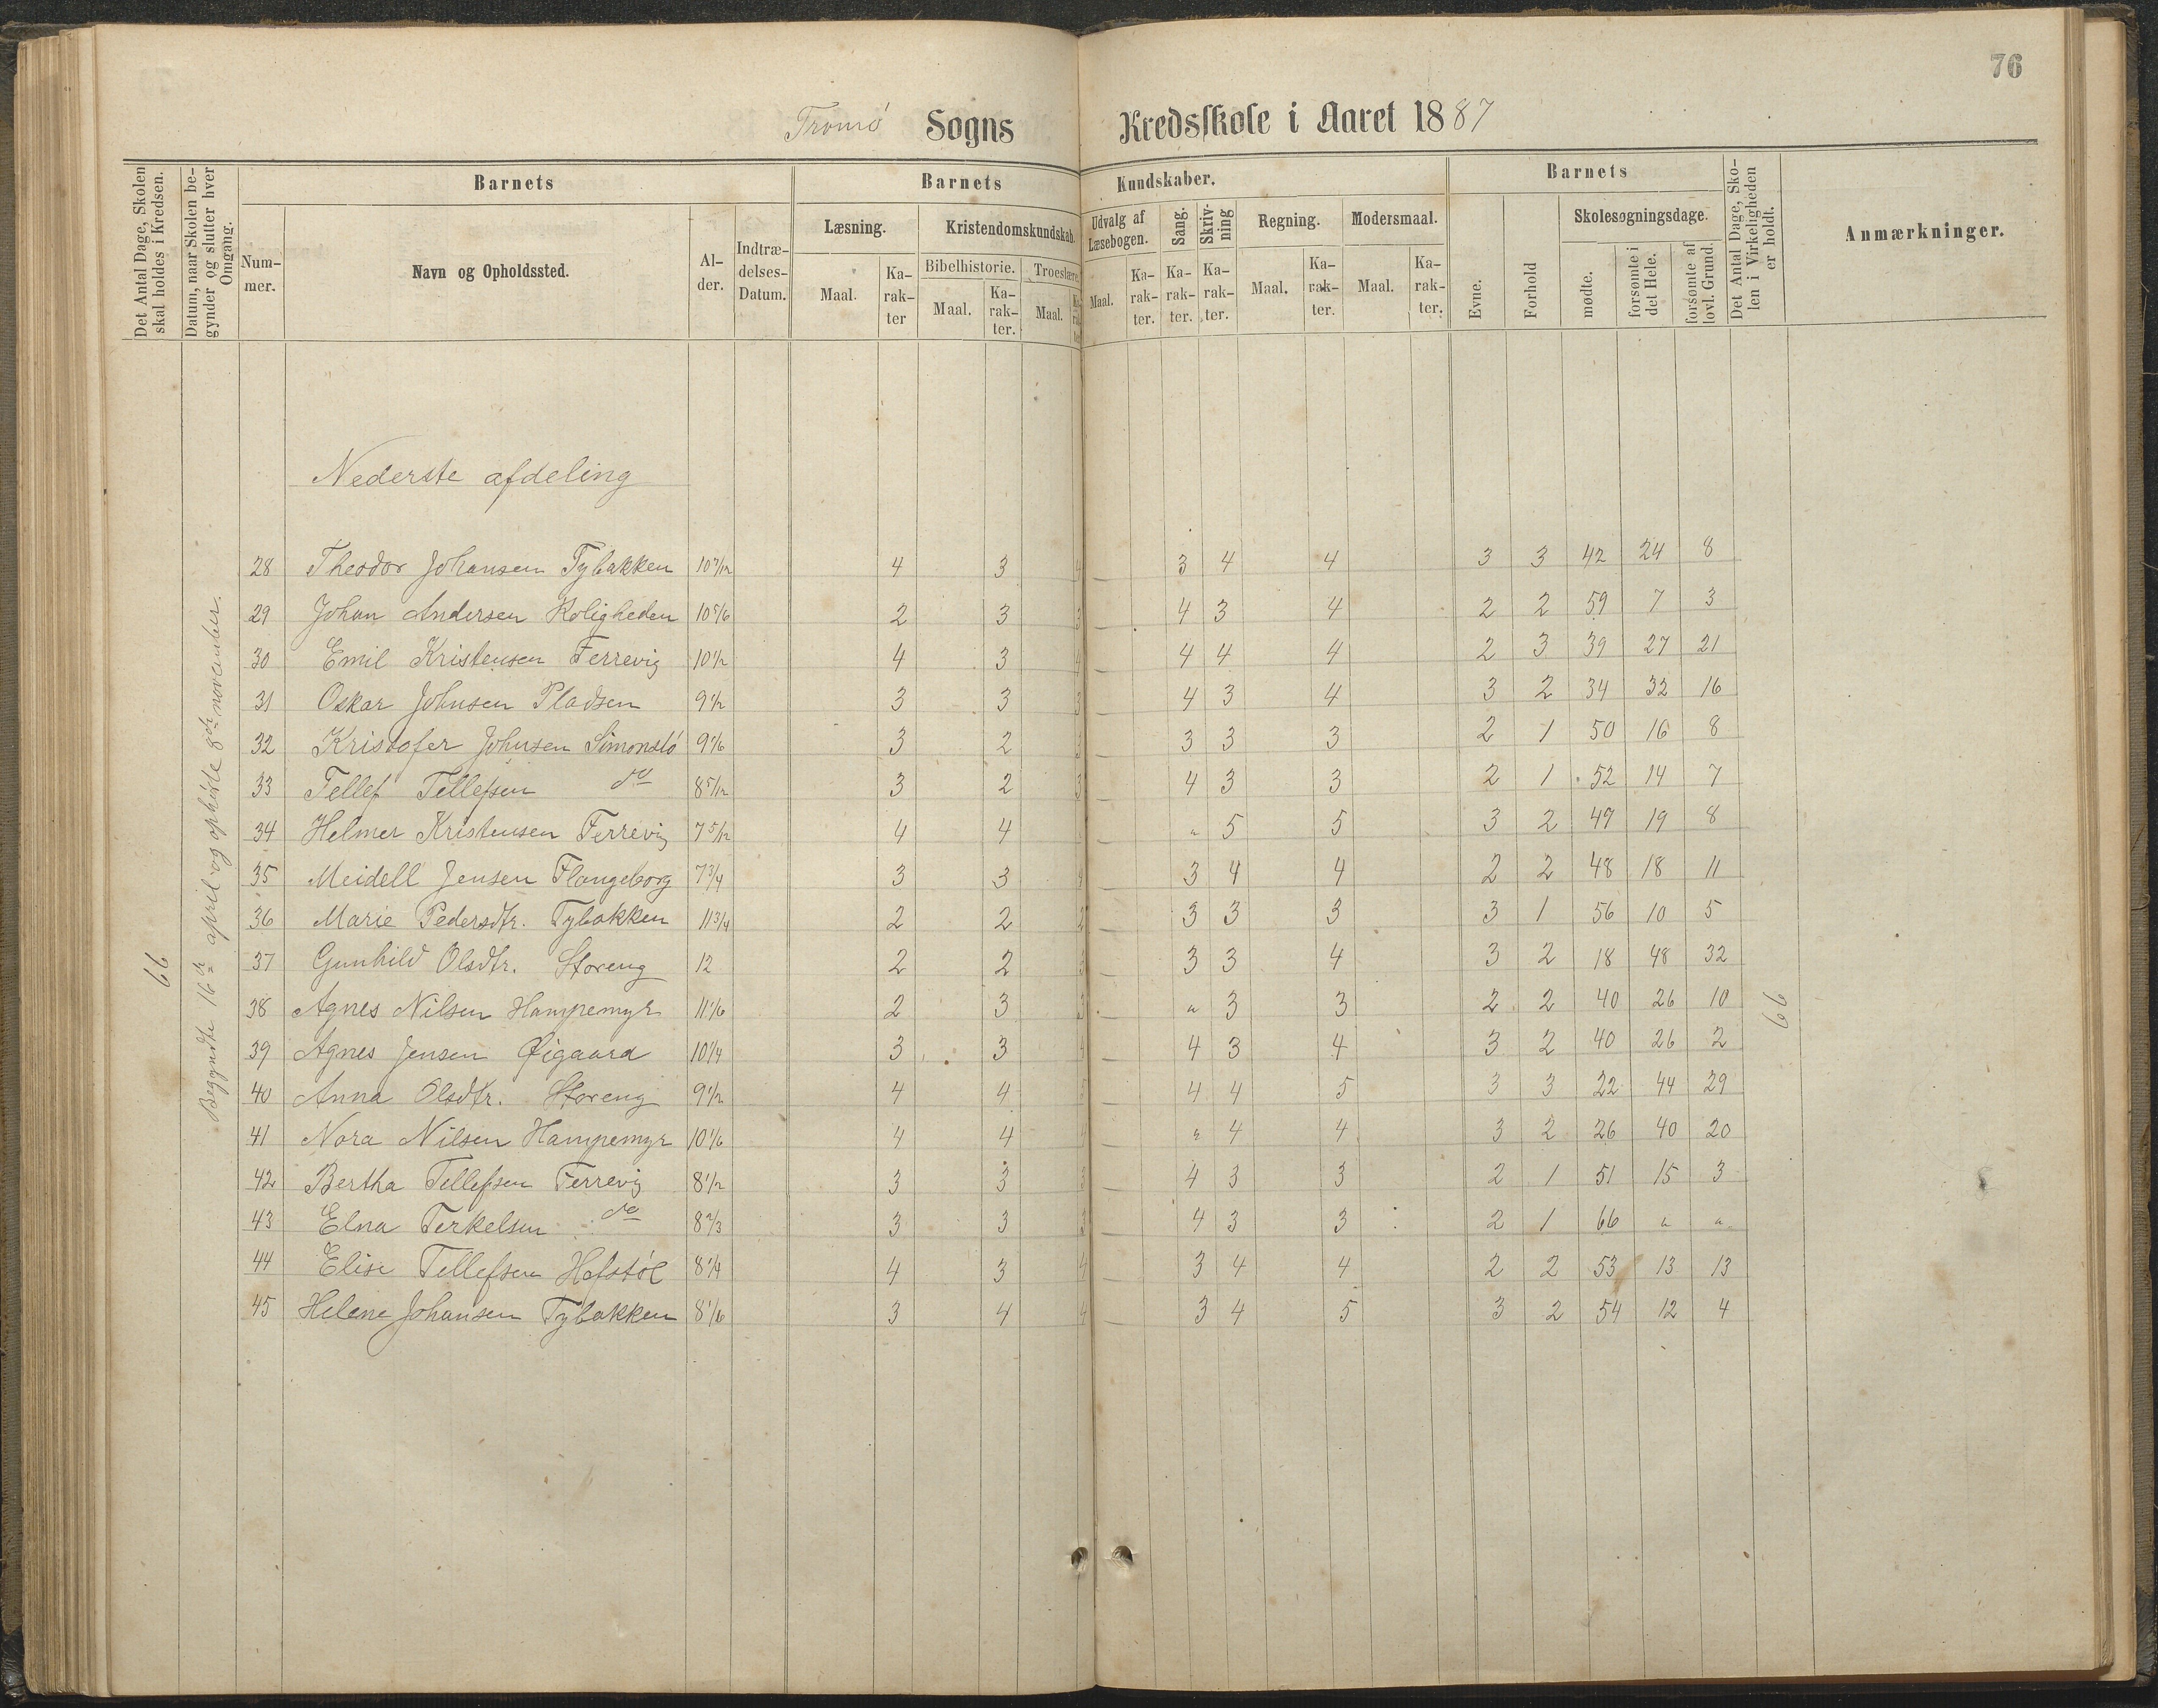 76
Tromø Sogns Kredsskole i Aaret 1887
Det Antal Dage, Skolen skal holdes i Kredsen.
Datum, naar Skolen begynder og slutter hver Omgang.
Barnets
Nummer.
Navn og Opholdssted.
Alder.
Indtrædelses-Datum.
Barnets Kundskaber.
Læsning.
Maal.
Karakter
Kristendomskundskab.
Bibelhistorie.
Maal.
Karakter.
Troeslære
Maal.
Udvalg af Læsebogen.
Maal.
Karakter.
Sang.
Karakter.
Skrivning
Karakter.
Regning.
Maal.
Karakter.
Modersmaal.
Maal.
Karakter.
Barnets
Evne.
Forhold
Skolesøgningsdage.
mødte.
forsømte i det Hele.
forsømte af lovl. Grund.
Det Antal Dage, Skolen i Virkeligheden er holdt.
Anmærkninger.
66
Begyndte 16de april og ophørte 8de november.
Nederste afdeling
28 Theodor Johansen Tybakken 10 7/12 4 3 4 – 3 4 4 3 3 42 24 8
29 Johan Andersen Roligheden 10 5/6 2 3 3 – 4 3 4 2 2 59 7 3
30 Emil Kristensen Færrevig 10 1/2 4 3 4 – 4 4 4 2 3 39 27 21
31 Oskar Johnsen Pladsen 9 1/2 3 3 3 – 4 3 4 3 2 34 32 16
32 Kristofer Johnsen Simonstø 9 1/6 3 2 3 – 3 3 3 2 1 50 16 8
33 Tellef Tellefsen do 8 5/12 3 2 3 – 4 3 3 2 1 52 14 7
34 Helmer Kristensen Færrevig 7 5/12 4 4 – " 5 5 3 2 47 19 8
35 Meidell Jensen Flangeborg 7 3/4 3 3 4 – 3 4 4 2 2 48 18 11
36 Marie Pedersdtr. Tybakken 11 3/4 2 2 2 – 3 3 3 3 1 56 10 5
37 Gunhild Olsdtr. Storeng 12 2 2 3 – 3 3 4 3 2 18 48 32
38 Agnes Nilsen Hampemyr 11 1/6 2 3 3 – " 3 3 2 2 40 26 10
39 Agnes Jensen Øigaard 10 1/4 3 3 4 – 4 3 4 3 2 40 26 2
40 Anna Olsdtr. Storeng 9 1/2 4 4 5 – 4 4 5 3 3 22 44 29
41 Nora Nilsen Hampemyr 10 1/6 4 4 4 – " 4 4 3 2 26 40 20
42 Bertha Tellefsen Færrevig 8 1/2 3 3 3 – 4 3 3 2 1 51 15 3
43 Elna Terkelsen do 8 2/3 3 3 3 – 4 3 3 2 1 66 " "
44 Elise Tellefsen Hofstøl 8 1/4 4 3 4 – 3 4 4 2 2 53 13 13
45 Helene Johansen Tybakken 8 1/6 3 4 4 – 3 4 5 3 2 54 12 4
66